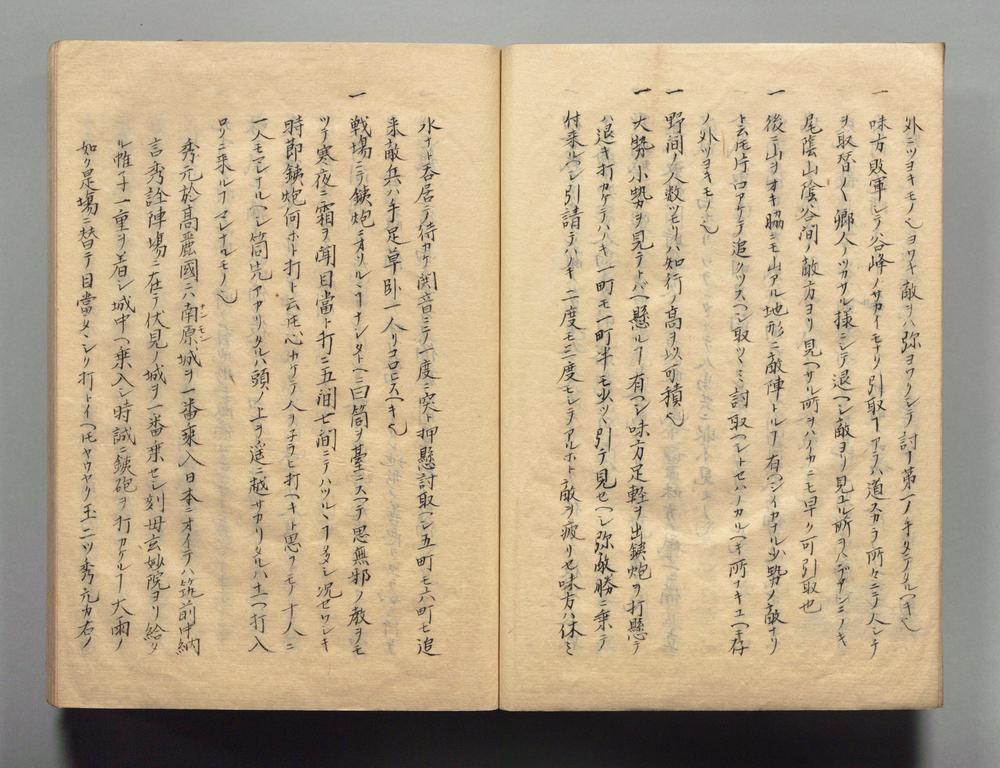 外ニツヨキモノ也ヨワキ敵ヲハ弥ヨワクシテ討ヿ第一ノ手タテタルヘキ也
一 味方敗軍シテ谷峰ノサカイモリ引取ヿアラハ道スカラ所々ニテ人シテ
ヲ取替ノ郷人ハツカルル様ニシテ退ヘシ敵ヨリ見エル所ヲハデ ニノキ
尾陰山陰谷間ノ敵方ヨリ見ヘサル所ヲハイカニモ早ク可引取也
一 後ニ山ヲオキ脇ニモ山アル地形ニ敵陣トルヿ有ヘシイカフル少勢ノ敵ナリ
ト云トモ片口アケテ追クツスヘシ取ツヽミ討取ヘシトセハノカルヘキ所ナキユヘ存
ノ外ツヨキモノ也
一 野間ノ人数ツモリハ知行ノ高ヲ以可積也
一 大勢小勢カヲ見テトバヘ懸ルヿ有ヘシ味方足軽ヲ出鉄炮ヲ打懸テ
ハ退キ打カケテハノキ一町モ一町半モ出ツヽ引テ見セヘシ弥敵勝ニ乗テ
付来ルヘシ引請テハノキ二度モ三度モシテアルホト敵ヲ疲ラセ味方ハ休ミ
水ナト呑居テ待カケ関音ニテ一度ニ突ト押懸討取ヘシ五町モ六町モ追
来敵兵ハ手足草臥一人リコロヒスヘキ也
一 戦場ニテ鉄炮ニオソルヽヿナシタトヘ三曰筒ヲ臺ニスヘテ思無邪ノ教ヲモ
ツテ寒夜ニ霜ヲ聞目當ト打ニ五間七間ニテハツルヽヿ多シ况セワシキ
時節鉄炮何ホト打ト云トモ心カケテ人ヲチラヒ打ヘキト思フモノ十人ニ
一人モマレナルヘシ筒先アカリタルハ頭ノ上ヲ遥ニ越サカリタルハ土ヘ打入
ロクニ来ルヿマレナルモノ也
秀元於高麗國ニハ南原城ヲ一番乗入日本ニオイテハ筑前中納
言秀詮陣場ニ在テ伏見ノ城ヲ一番乗セシ刻母玄妙院ヨリ給リ
ル帷子一重ヲ着シ城中ヘ乗入シ時誠ニ鉄砲ヲ打カケルヿ大雨ノ
如ク是場ニ替テ目當タシクリ打トイヘトモヤウヤク玉二ツ秀元カ右ノ